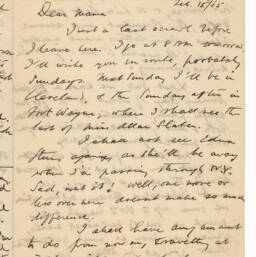 Feb. 15/15
Dear Mama
Just a last scrawl before
I leave here. I go at 8 A.M.
I'll write you in while, probably
Sundays. Next Sunday I'll be in
Cleveland, & the Sunday after in
Fort Wayne, where I shall see the
last of Miss Slater.
I shall not see Edna
as she'll be away
when I'm passing through N.Y.
Sad, isn't it! Well, one more or
less over here doesn't make so much
difference.
I shall have any amount
to do from now on, travelling at